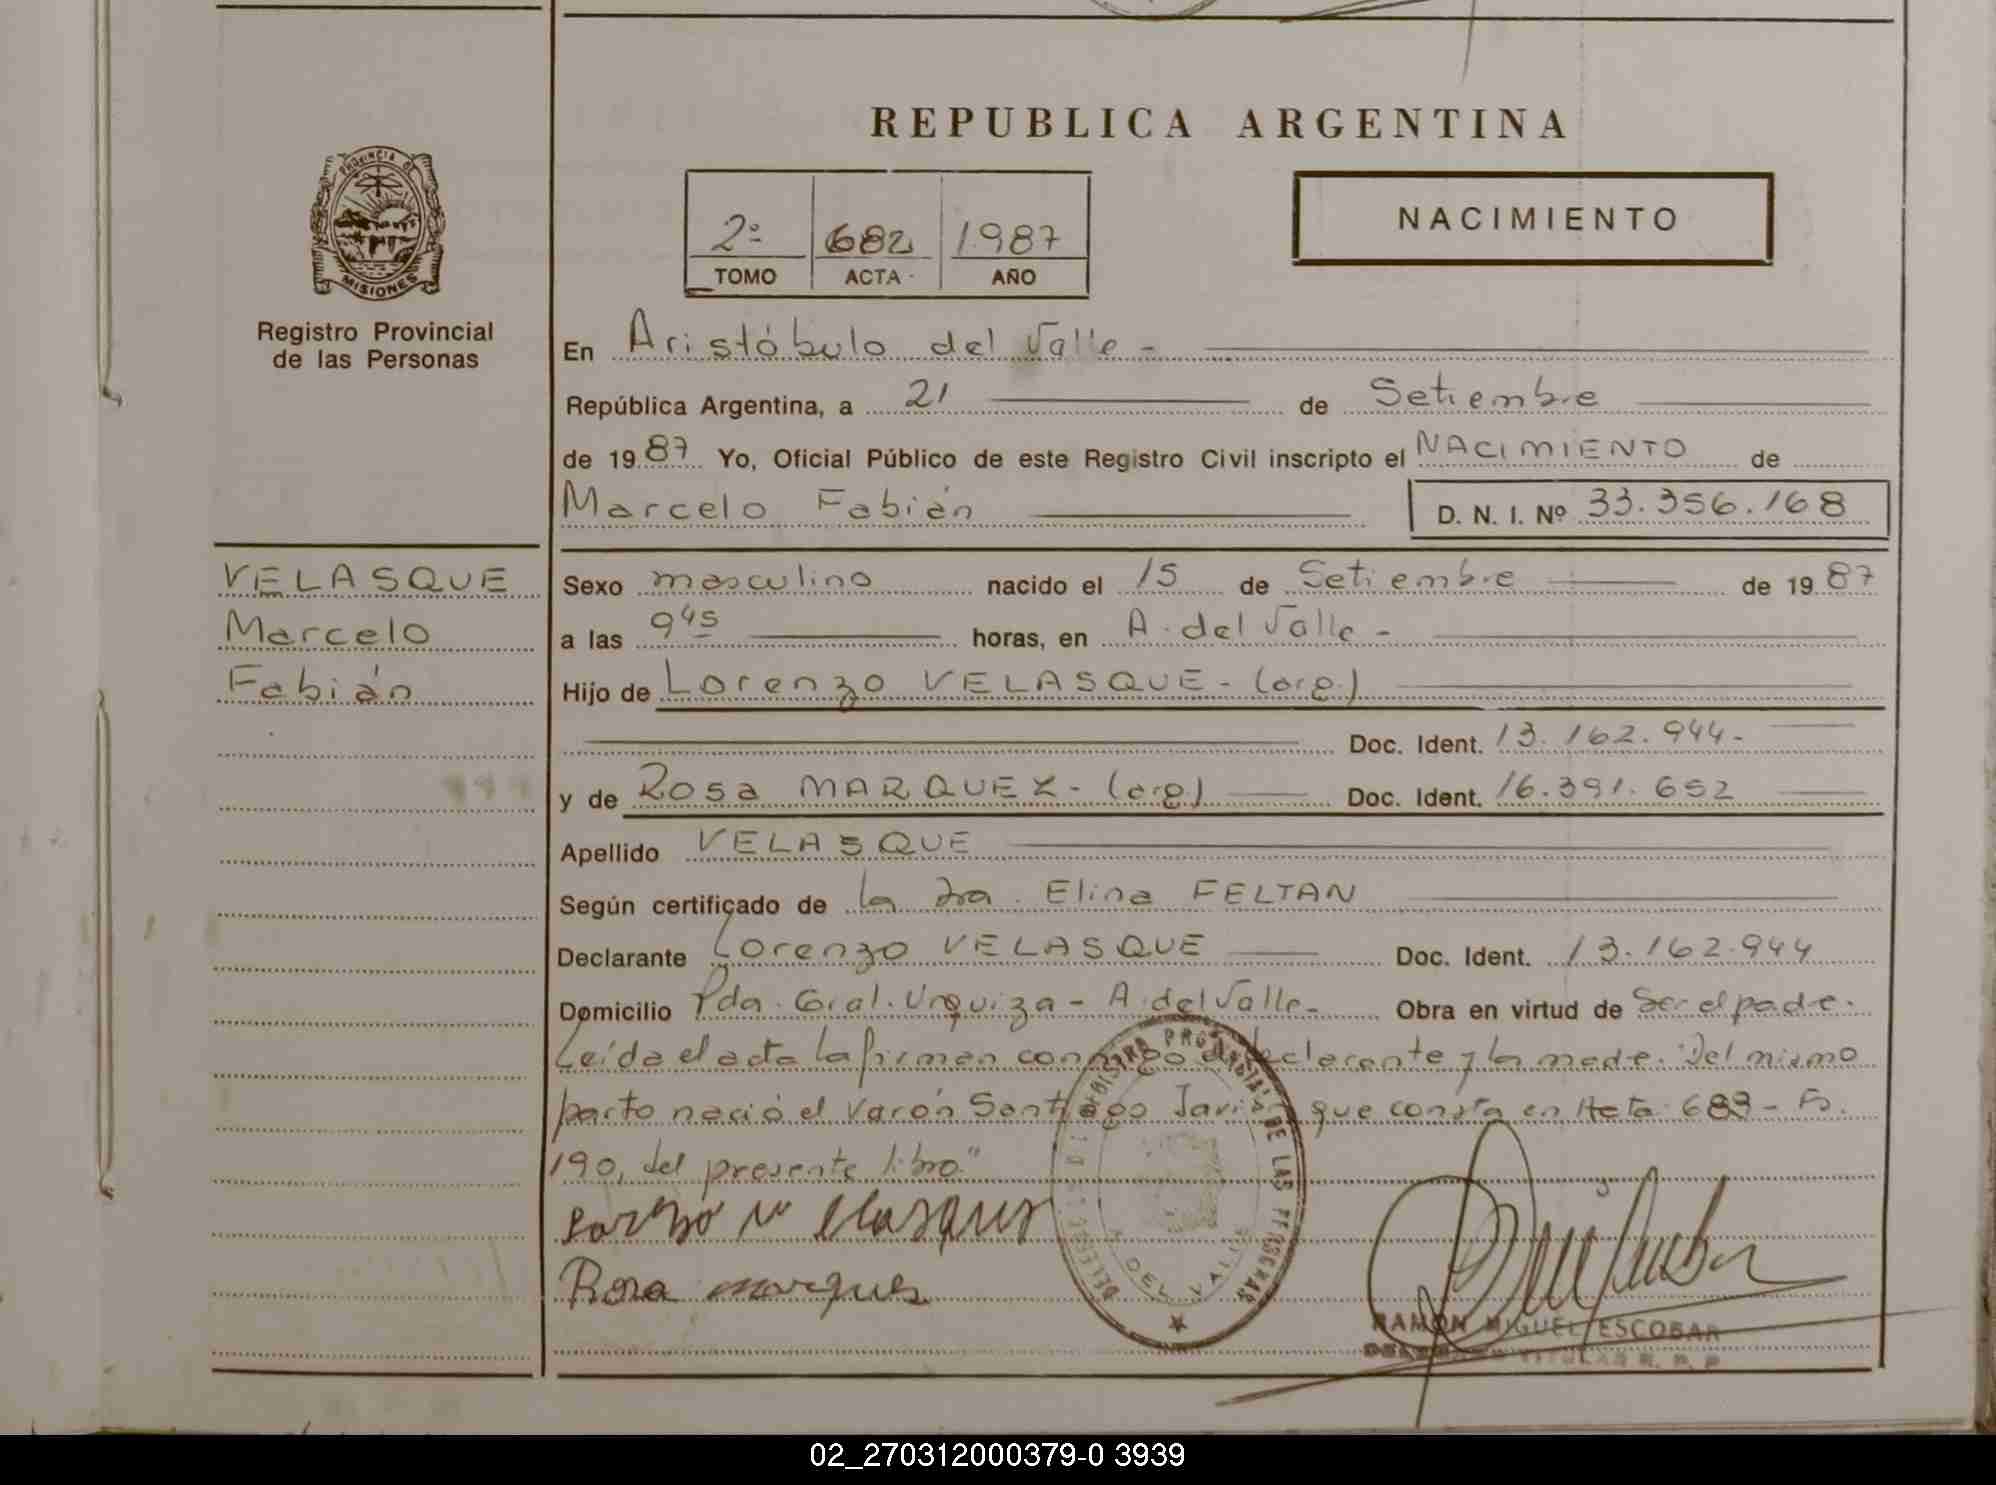 REPUBLICA ARGENTINA
PROVINCIA DE
MISIONES
Registro Provincial
de las Personas
2º 682 1987
TOMO ACTA AÑO
NACIMIENTO
En Aristóbulo del Valle -
República Argentina, a 21 de Setiembre
de 1987 Yo, Oficial Público de este Registro Civil inscripto el NACIMIENTO de
Marcelo Fabián D. N. I. Nº 33.356.168
VELASQUE
Marcelo
Fabián
Sexo masculino nacido el 15 de Setiembre de 1987
a las 9 45 horas, en A. del Valle -
Hijo de Lorenzo VELASQUE - (arg.)
Doc. Ident. 13.162.944-
y de Rosa MARQUEZ - (arg) Doc. Ident. 16.391.652
Apellido VELASQUE
Según certificado de la Dra. Elina FELTAN
Declarante Lorenzo VELASQUE Doc. Ident. 13.162.944
Domicilio Pda. Gral. Urquiza - A. del Valle - Obra en virtud de Ser el padre.
Leída el acta la firman conmigo el declarante y la madre. "Del mismo
parto nació el varón Santiago Javier que consta en Acta 683 - Fº
190, del presente libro."
Rosa Marques
DEL REGISTRO PROVINCIAL DE LAS PERSONAS
A. DEL VALLE
RAMON MIGUEL ESCOBAR
TITULAR R. P. P.
02_270312000379-0 3939